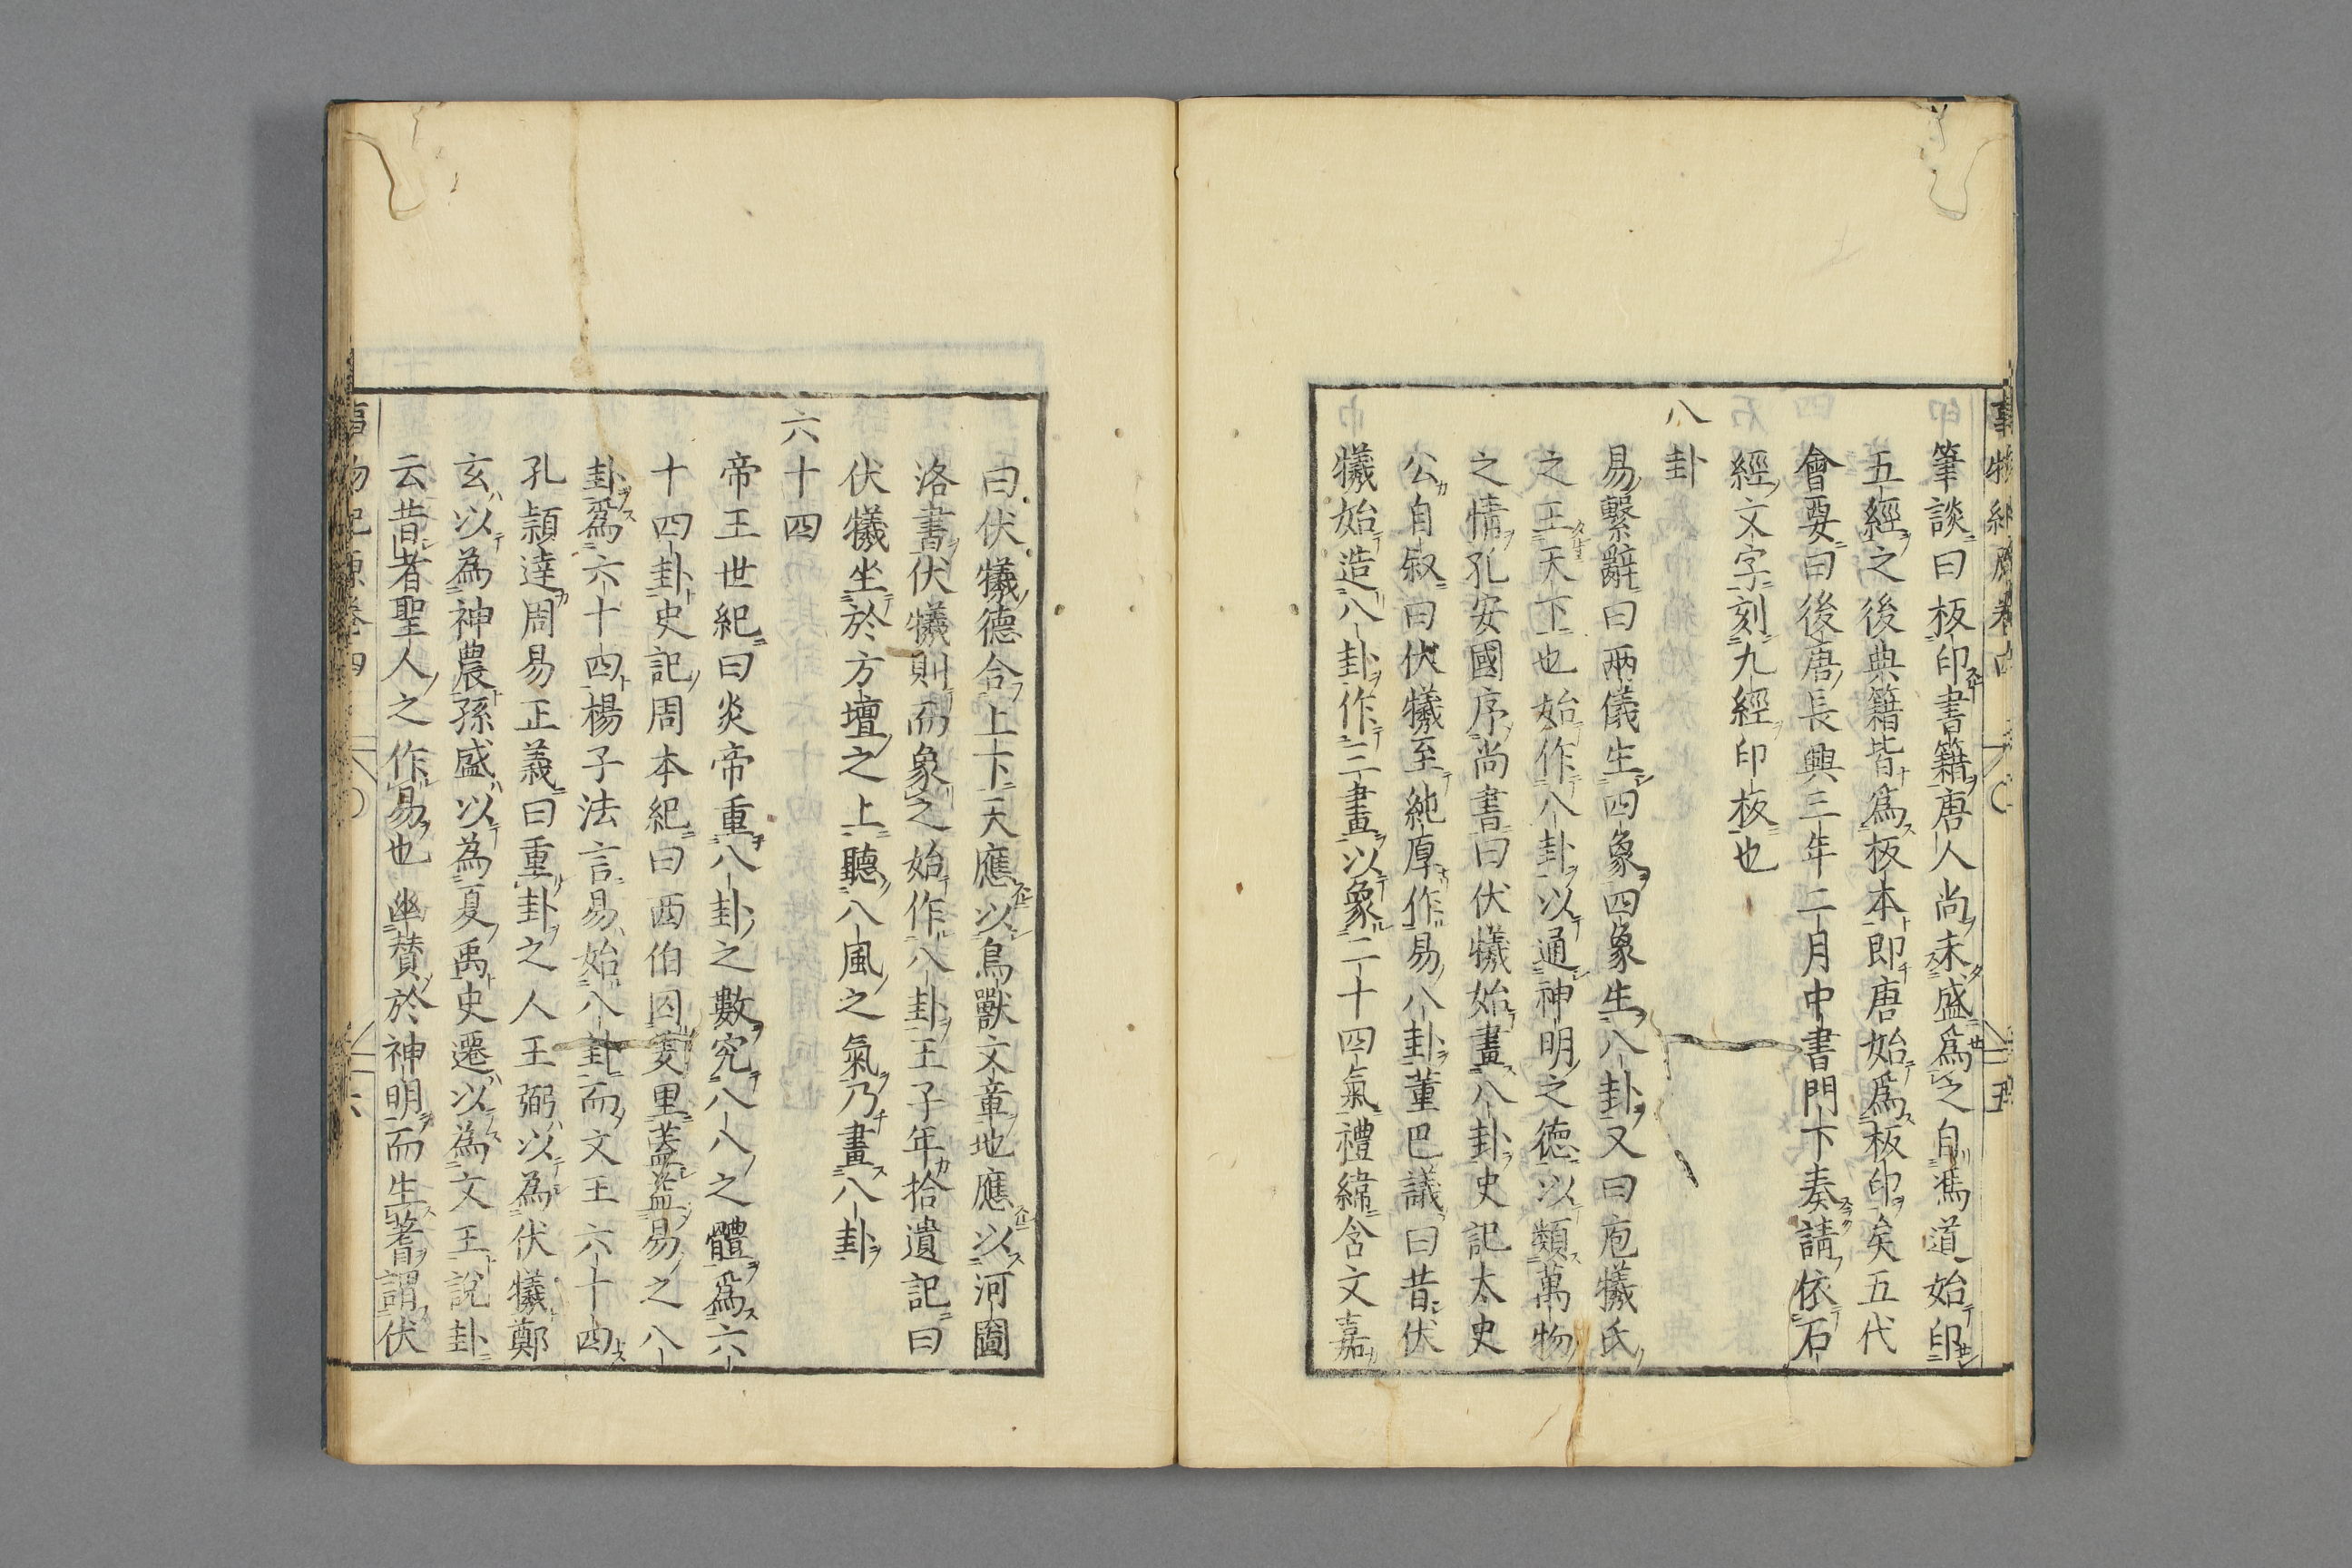 筆談曰板印書籍唐人尚未盛爲之自馮道始印
五經之後典籍皆爲板本即唐始爲板印矣五代
會要曰後唐長興三年二月中書門下奏請依石
經文字刻九經印板也
八卦
易繫辭曰兩儀生四象四象生八卦又曰庖犧氏
之王天下也始作八卦以通神明之德以類萬物
之情孔安國序尚書曰伏犧始畫八卦史記太史
公自叙曰伏犧至純厚作易八卦董巴議曰昔伏
犧始造八卦作三畫以象二十四氣禮緯含文嘉
曰伏犧德合上下天應以鳥獸文章地應以河圖
洛書伏犧則而象之始作八卦王子年拾遺記曰
伏犧坐於方壇之上聽八風之氣乃畫八卦
六十四
帝王世紀曰炎帝重八卦之數究八八之體爲六
十四卦史記周本紀曰西伯囚羑里蓋益易之八
卦爲六十四楊子法言易始八卦而文王六十四
孔頴達周易正義曰重卦之人王弼以為伏犧鄭
玄以為神農孫盛以為夏禹史遷以為文王說卦
云昔者聖人之作易也幽賛於神明而生蓍謂伏